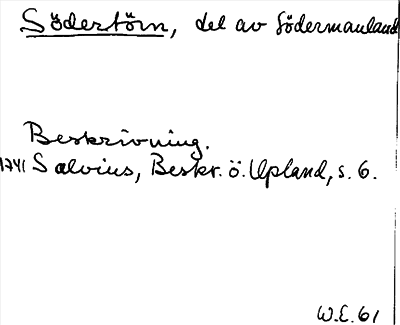 Södertörn, del av Södermanland
Beskrivning.
1741 Salvius, Beskr. ö. Upland, s. 6.
W.E. 61